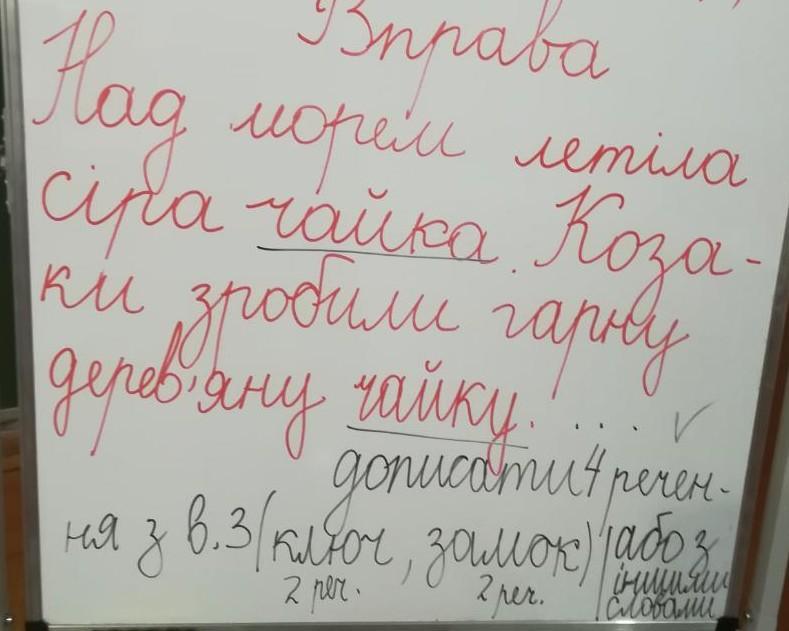 Вправа
Над морем летіла
сіра чайка. Коза-
ки зробили гарну
дерев'яну чайку. .... ✓
дописати 4 речен-
ня з в.3 (ключ, замок) або з
2 реч. 2 реч. іншими
словами